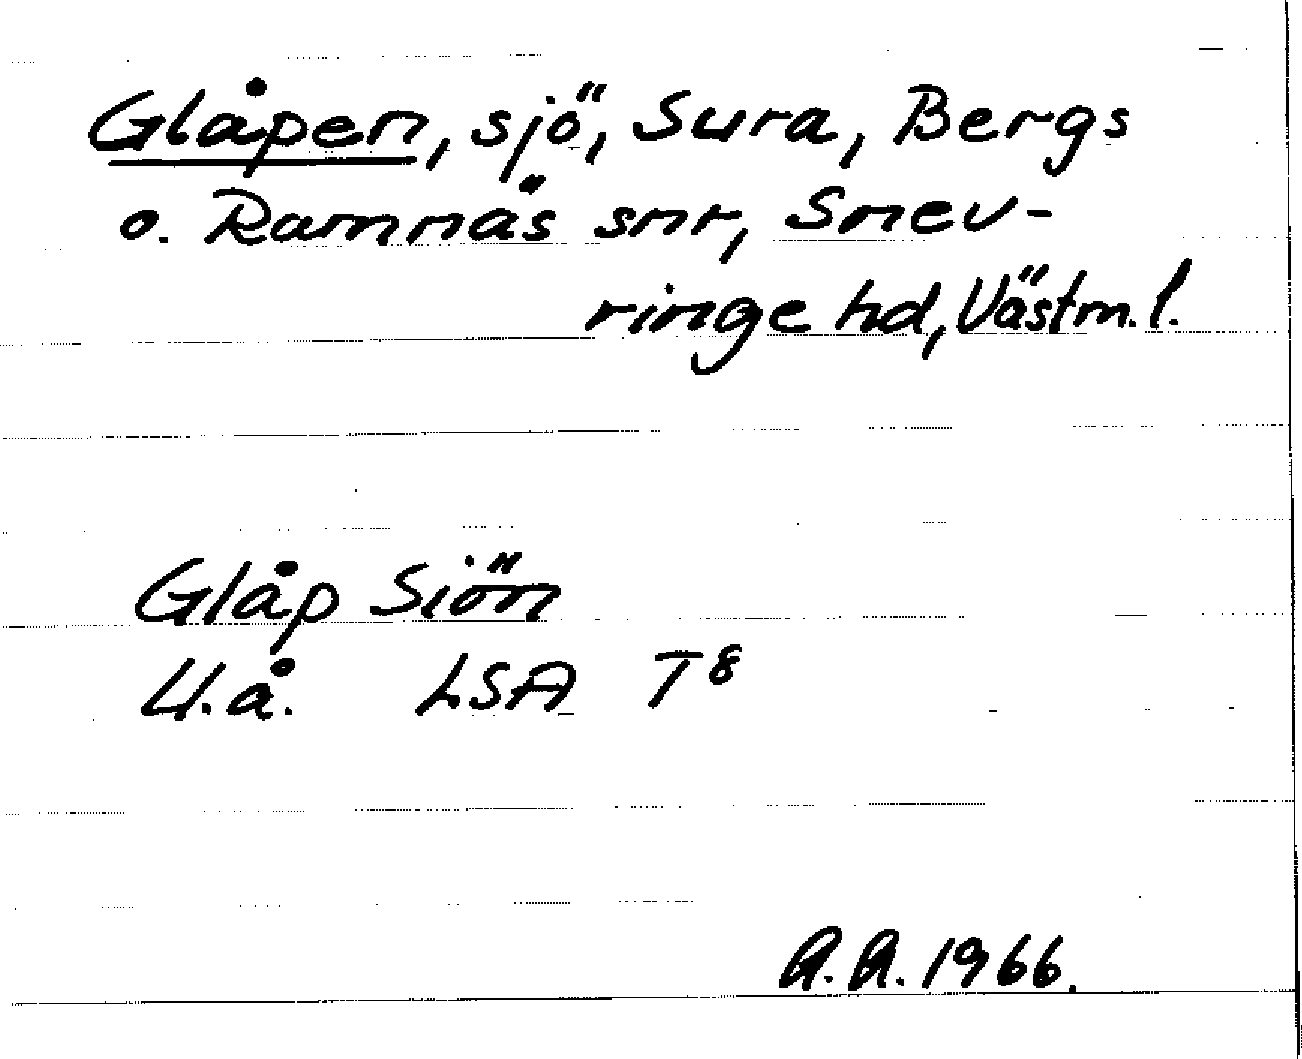 Glåpen, sjö, Sura, Bergs
o. Ramnäs snr, Snev-
ringe hd, Västm. l.
Glåp Siön
U.å. LSA T8
A.A. 1966.